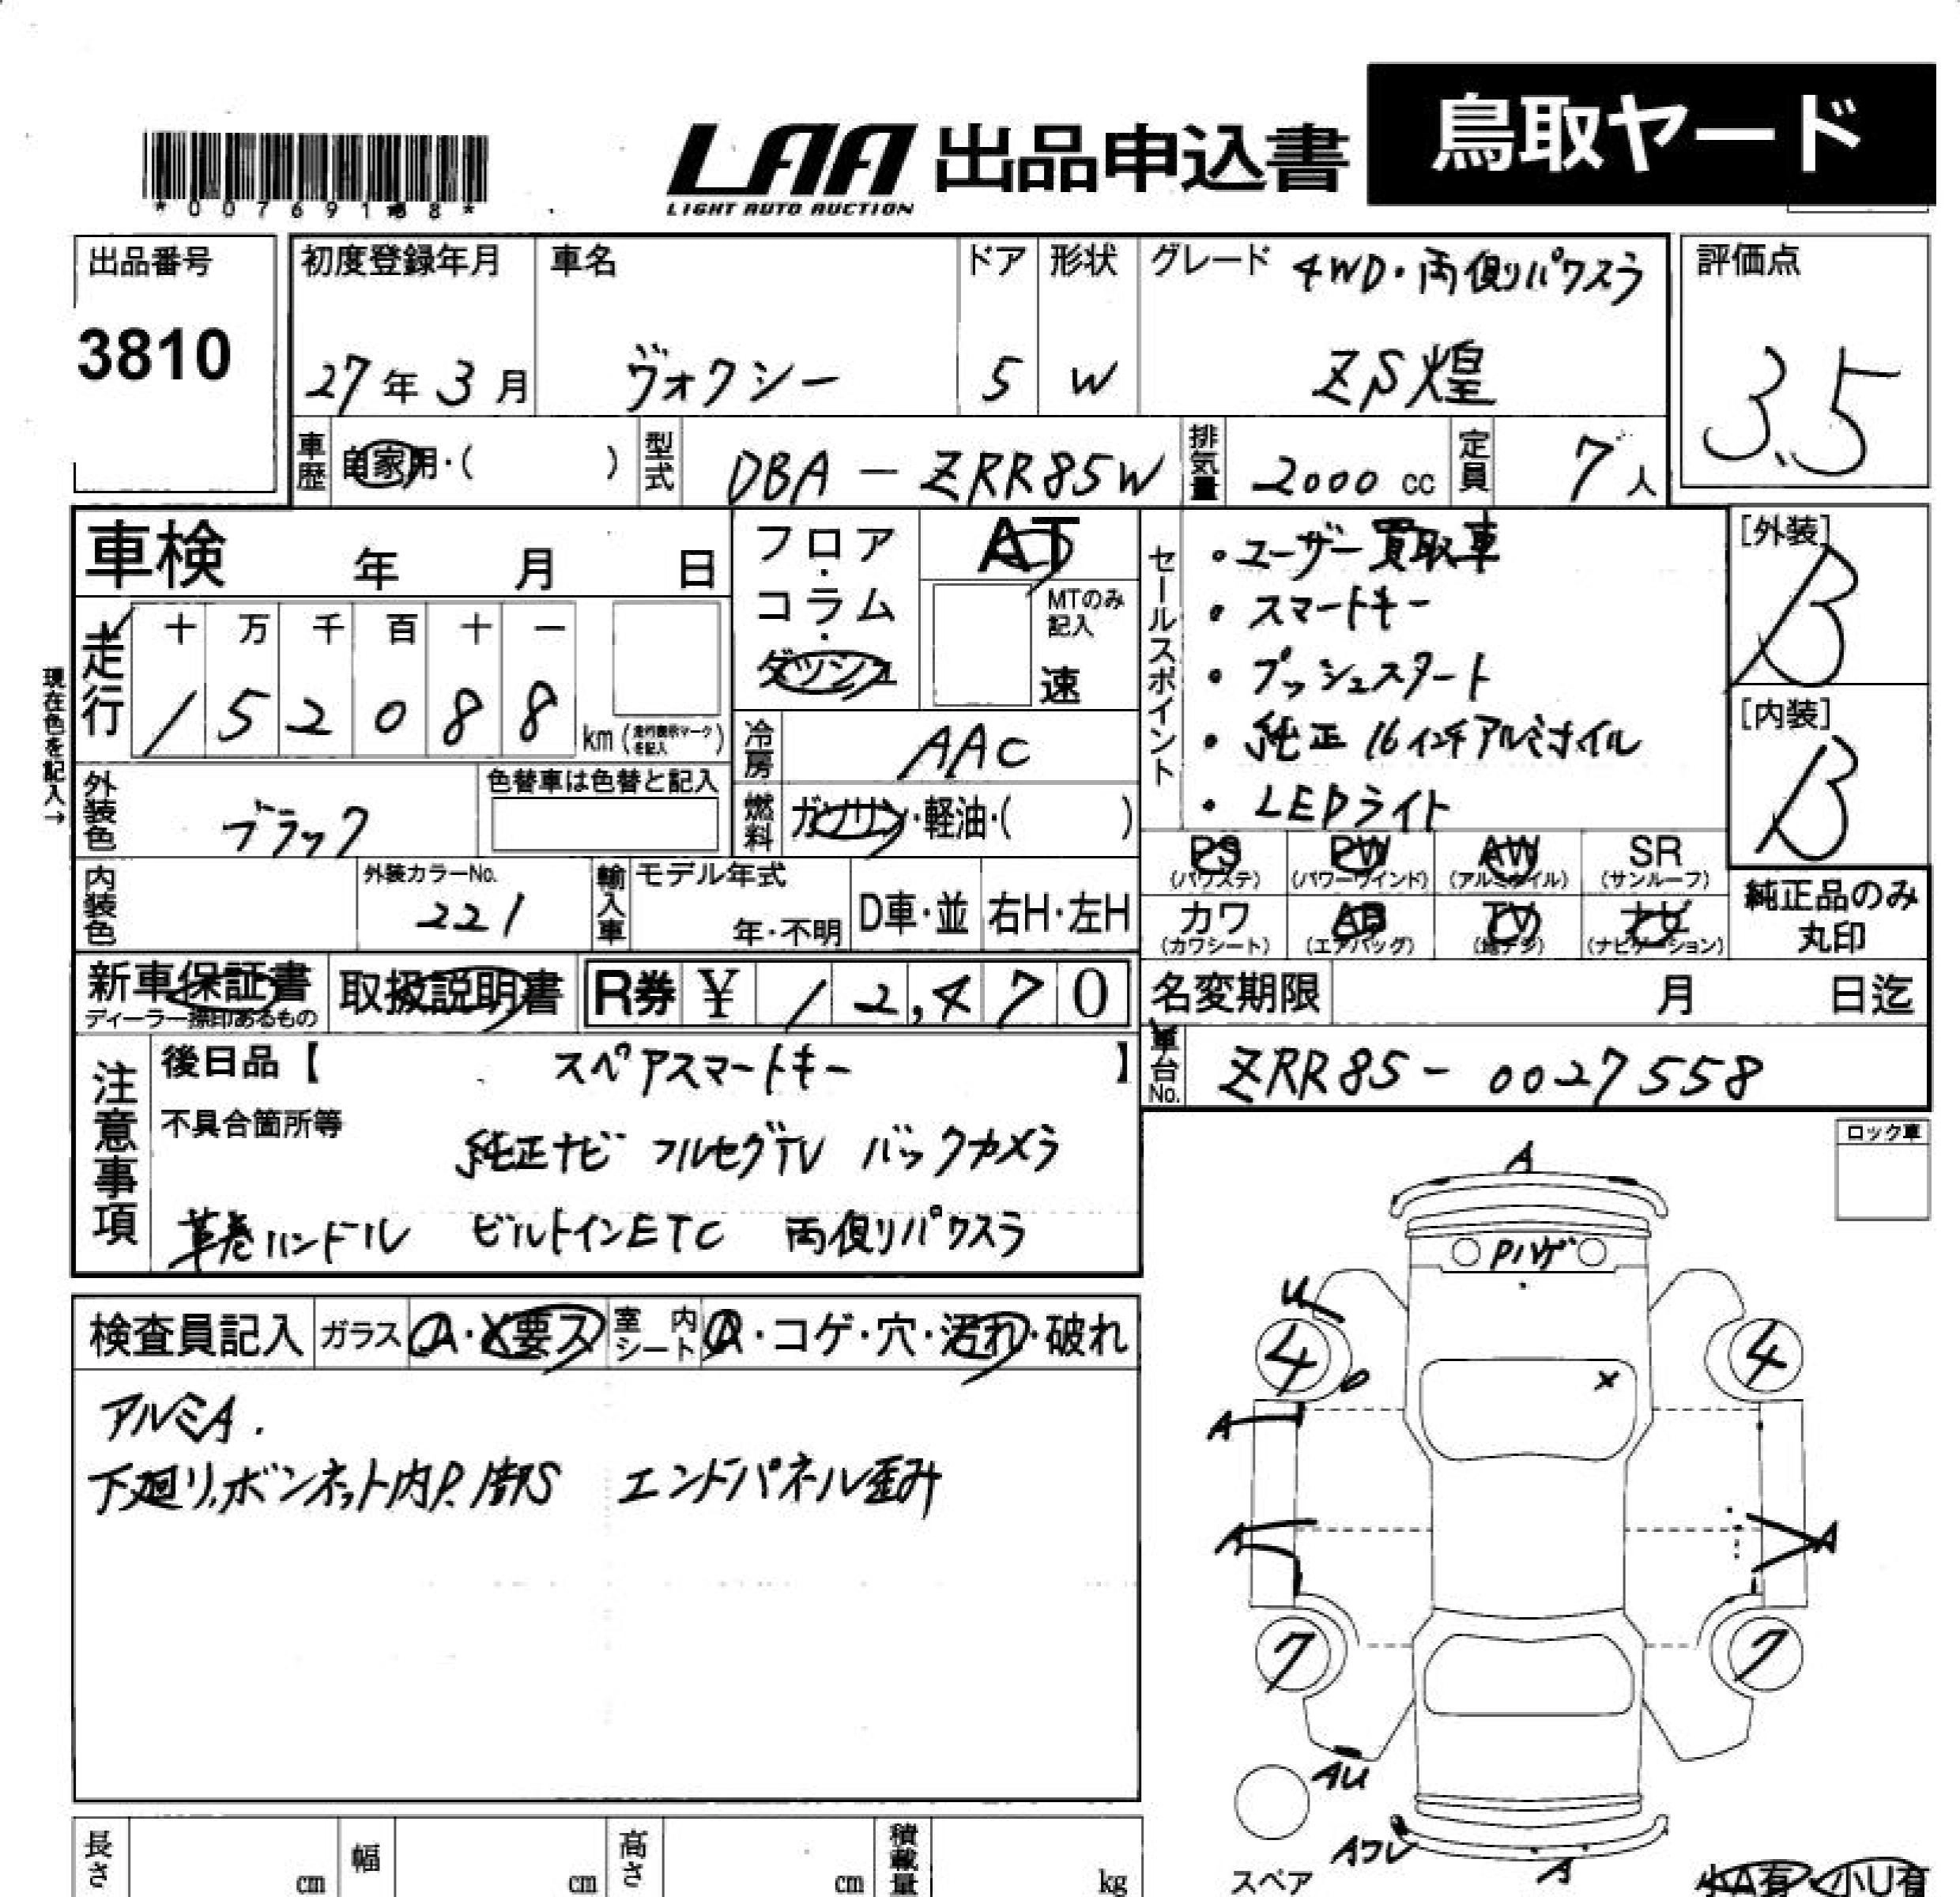 鳥取ヤード
LAA 出品申込書
LIGHT AUTO AUCTION
出品番号
3810
初度登録年月
27年3月
車名
ヴォクシー
ドア
5
形状
W
グレード 4WD・両側リパワスラ
ZS煌
評価点
3.5
車歴 自家用・( )
型式 DBA-ZRR85W
排気量 2000cc
定員 7人
車検 年 月 日
フロア・コラム・ダッシュ
AT
MTのみ記入
速
セールスポイント
・ユーザー買取車
・スマートキー
・プッシュスタート
・純正16インチアルミホイル
・LEDライト
[外装]
B
[内装]
B
現在色を記入→
走行
十 万 千 百 十 一
1 5 2 0 8 8 km (走行表示マークを記入)
冷房 AAC
外装色 ブラック
色替車は色替と記入
燃料 ガソリン・軽油・( )
PS (パワステ) PW (パワーウインド) AW (アルミホイル) SR (サンルーフ)
カワ (カワシート) AB (エアバッグ) TV (地デジ) ナビ (ナビゲーション)
純正品のみ丸印
内装色
外装カラーNo.
221
輸入車 モデル年式
年・不明
D車・並 右H・左H
新車保証書
ディーラー捺印あるもの
取扱説明書
R券 ¥ 12,470
名変期限 月 日迄
車台No. ZRR85-0027558
注意事項
後日品【 スペアスマートキー 】
不具合箇所等
純正ナビ フルセグTV バックカメラ
革巻ハンドル ビルトインETC 両側リパワスラ
検査員記入 ガラス A・X要ス 室内シート A・コゲ・穴・汚れ・破れ
アルミA.
エンドパネル歪み
ロック車
A
Pハゲ
U
4
4
X
A
A
A
7
7
AU
Aワレ
A
スペア
小A有・小U有
長さ cm 幅 cm 高さ cm 積載量 kg